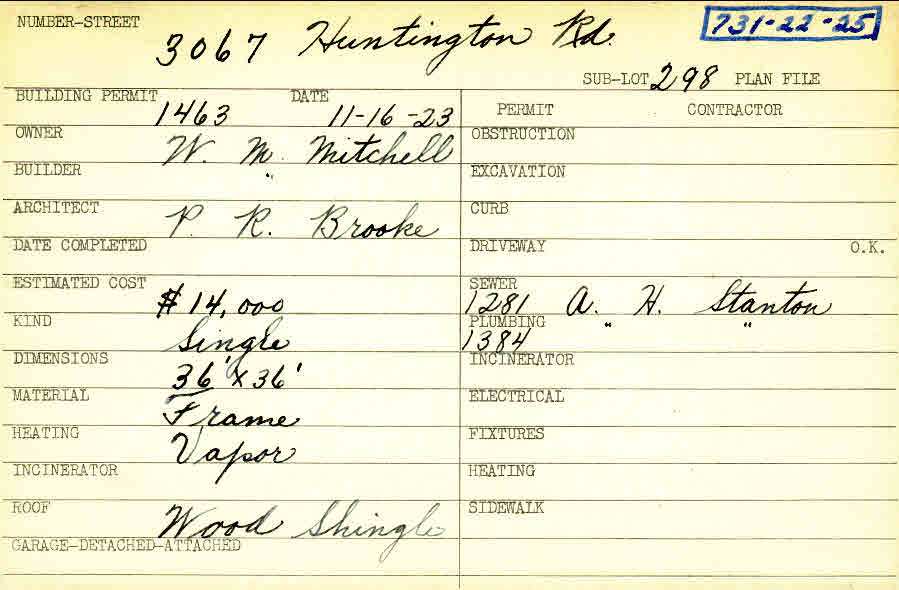 NUMBER-STREET 3067 Huntington Rd. 731-22-25
SUB-LOT 298 PLAN FILE
BUILDING PERMIT 1463 DATE 11-16-23
PERMIT CONTRACTOR
OWNER W. M. Mitchell
OBSTRUCTION
BUILDER "
EXCAVATION
ARCHITECT P. R. Brooke
CURB
DATE COMPLETED
DRIVEWAY O.K.
ESTIMATED COST $14,000
SEWER 1281 A. H. Stanton
KIND Single
PLUMBING 1384 " "
DIMENSIONS 36' x 36'
INCINERATOR
MATERIAL Frame
ELECTRICAL
HEATING Vapor
FIXTURES
INCINERATOR
HEATING
ROOF Wood Shingle
SIDEWALK
GARAGE-DETACHED-ATTACHED